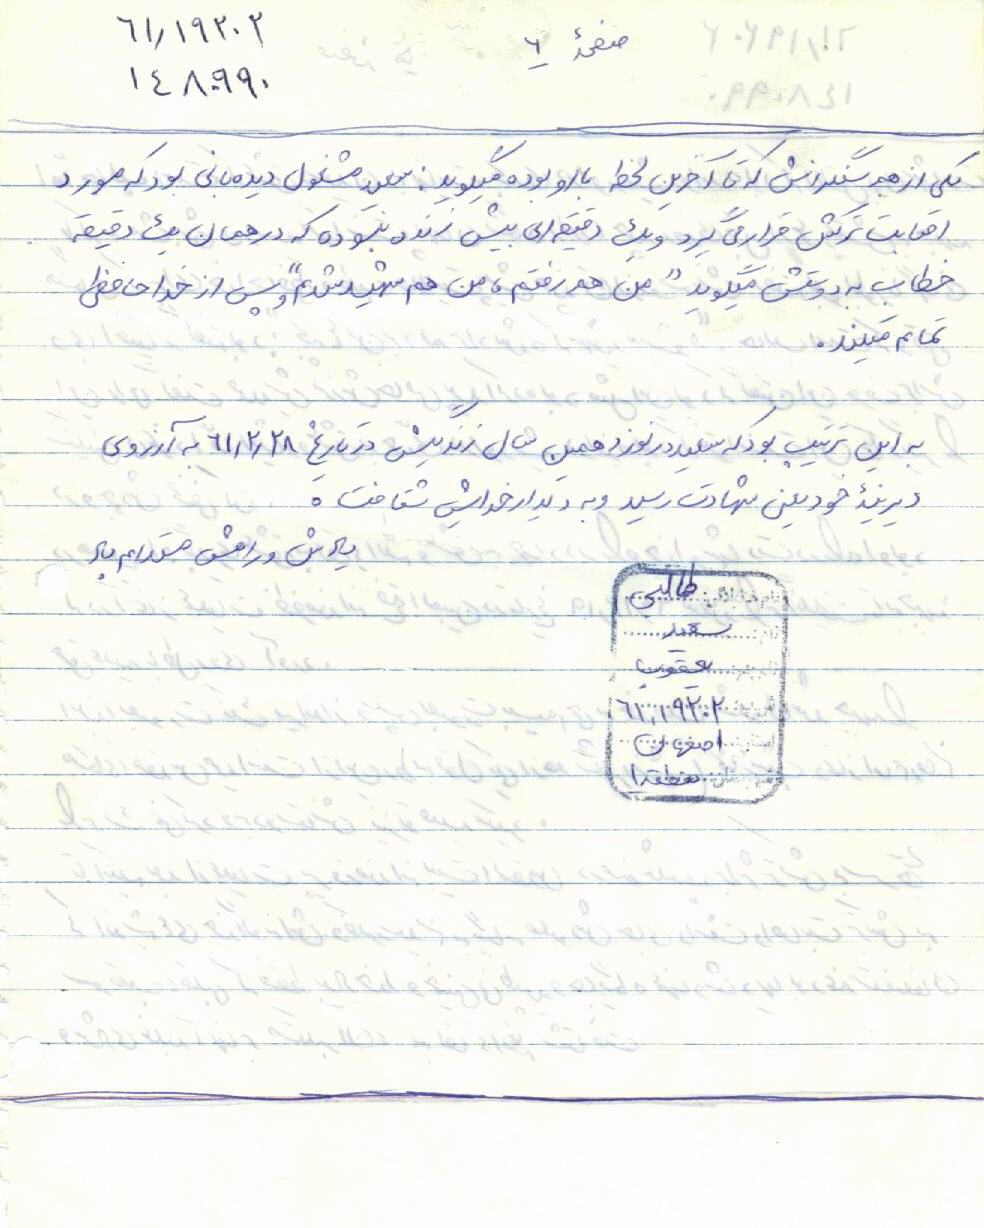 ۶۱٫۱۹۲۰۲
۱۴۸۰۹۹۰
صفحهٔ ۶
یکی از هم سنگرانش که تا آخرین لحظه با او بوده میگوید: سعید مشغول دیده‌بانی بود که مورد
اصابت ترکش قرار می‌گیرد و یک دقیقه‌ای بیش زنده نبوده که در همان یک دقیقه
خطاب به دوستش میگوید "من هم رفتم، من هم شهید شدم" و پس از خداحافظی
تمام میکند.
به این ترتیب بود که سعید در نوزدهمین سال زندگیش در تاریخ ۶۱٫۲٫۲۸ به آرزوی
دیرینهٔ خود یعنی شهادت رسید و به دیدار خدایش شتافت.
یادش و راهش مستدام باد
نام خانوادگی: طالبی
نام: سعید
نام پدر: یعقوب
۶۱٫۱۹۲۰۲
استان: اصفهان
شهرستان: منطقه ۱